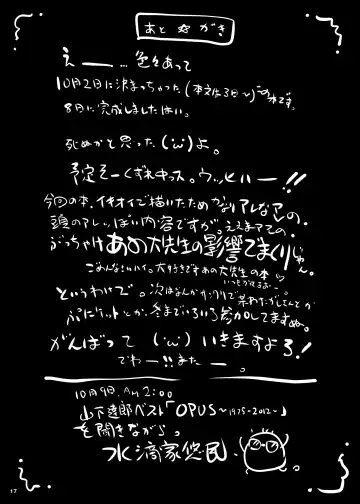 あとがき
えー…色々あって
10月2日に決まっちゃった(本文は3日〜)これです。
8日に完成しましたはい。
死ぬかと思った(;ω;)よ。
予定そーくずれキッス。ウッヒィー!!
今回の本、イキオイで描いたためかなりアレなアレの、
頭のアレっぽい内容ですが。ええまアその、
ぶっちゃけあめ大先生の影響でまくりじゃん。
ごめんなさいハイ。大好きですあの大先生の本♡
というわけで。次は
ぷにケットとか、冬までいろいろ参加してますぬ。
がんばって(;ω;)いきますよろ!
でわー!!またー。
10月9日、AM2:00
山下達郎ベスト「OPUS〜1975-2012〜」
を聞きながら。
水滴家悠民
17